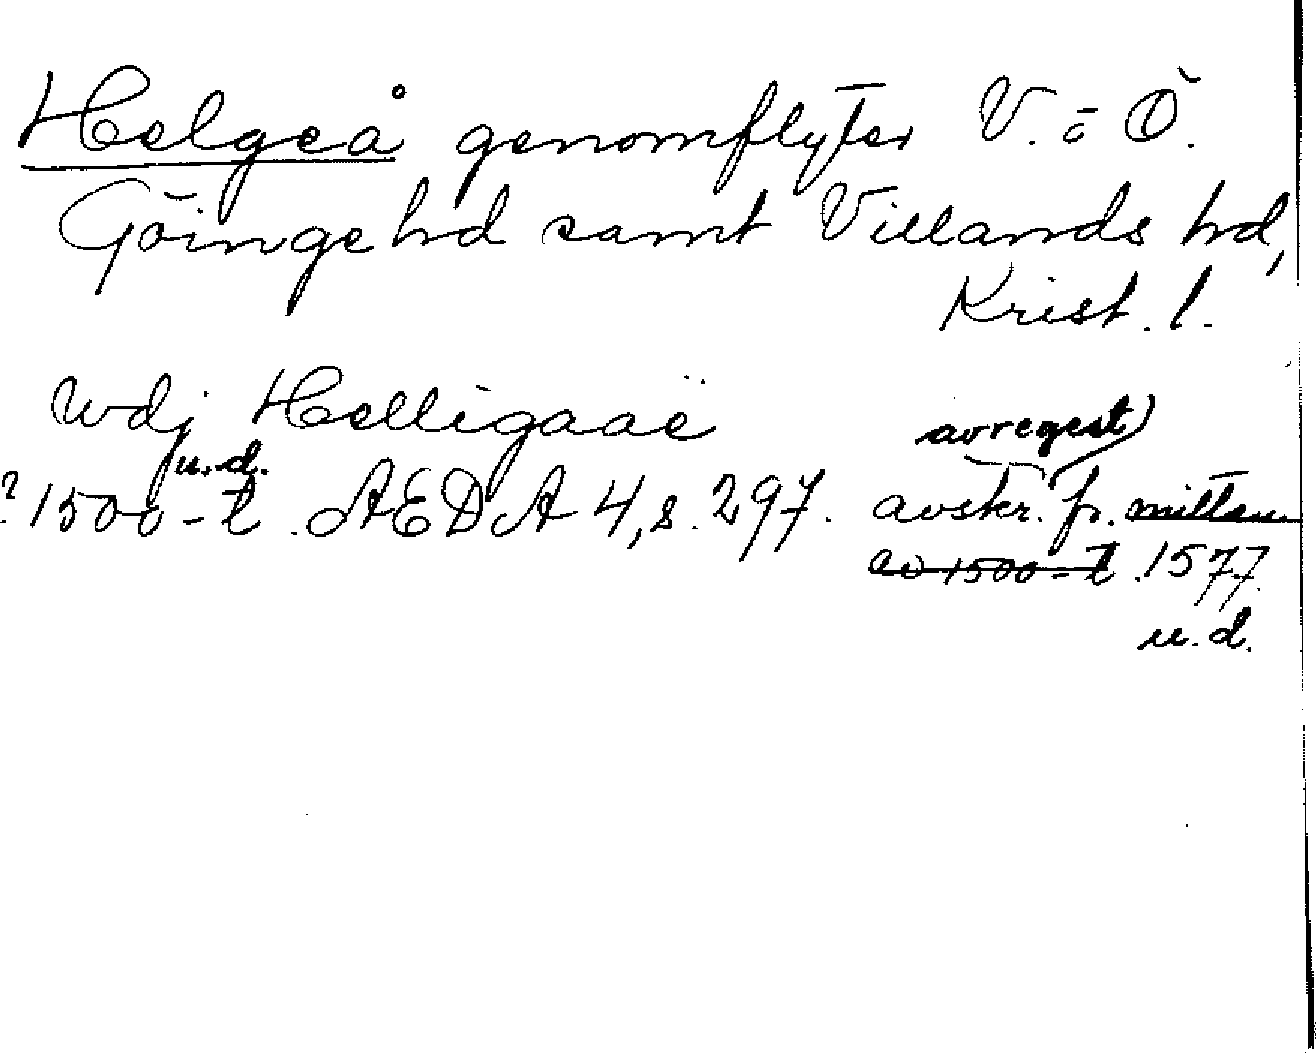 Helgeå genomflyter V. o Ö.
Göinge hd samt Villands hd,
Krist. l.
wdj Helligaaë
u.d.
? 1500-t. AEDA 4, s. 297. avskr. fr. mitten
av regest)
av 1500-t. 1577.
u.d.